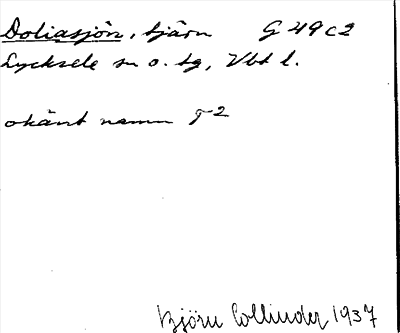 Doliasjön, tjärn G 49 c 2
Lycksele sn o. tg, Vbt l.
okänt namn T2
Björn Collinder 1937